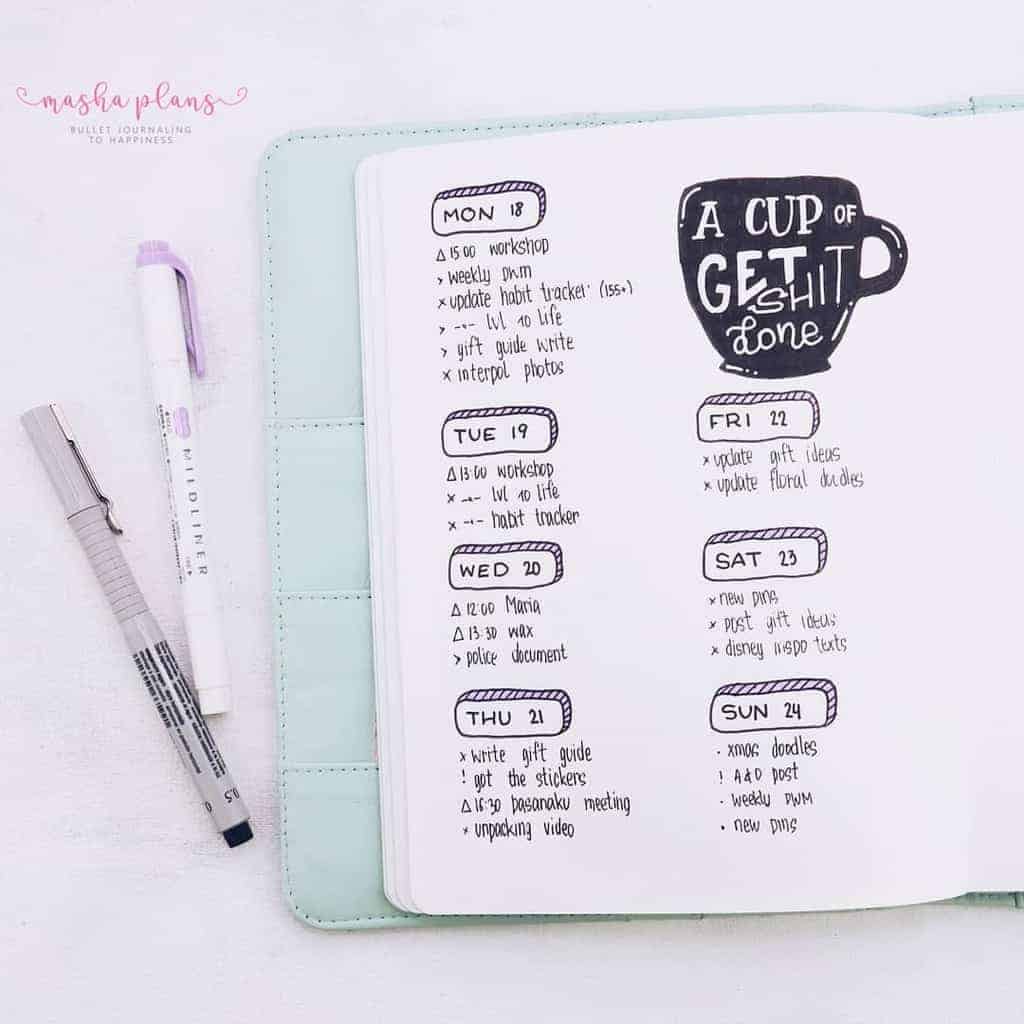 masha plans
BULLET JOURNALING
TO HAPPINESS
MON 18
Δ 15:00 workshop
> weekly DWM
× update habit tracker (155+)
> -"- lvl 10 life
> gift guide write
× interpol photos
TUE 19
Δ 13:00 workshop
× -"- lvl 10 life
× -"- habit tracker
WED 20
Δ 12:00 Maria
Δ 13:30 wax
> police document
THU 21
× write gift guide
! got the stickers
Δ 16:30 pasanaku meeting
× unpacking video
A CUP OF
GET SHIT
done
FRI 22
× update gift ideas
× update floral doodles
SAT 23
× new pins
× post gift ideas
× disney inspo texts
SUN 24
· xmas doodles
! A&D post
· weekly DWM
· new pins
MILDLINER
0.5